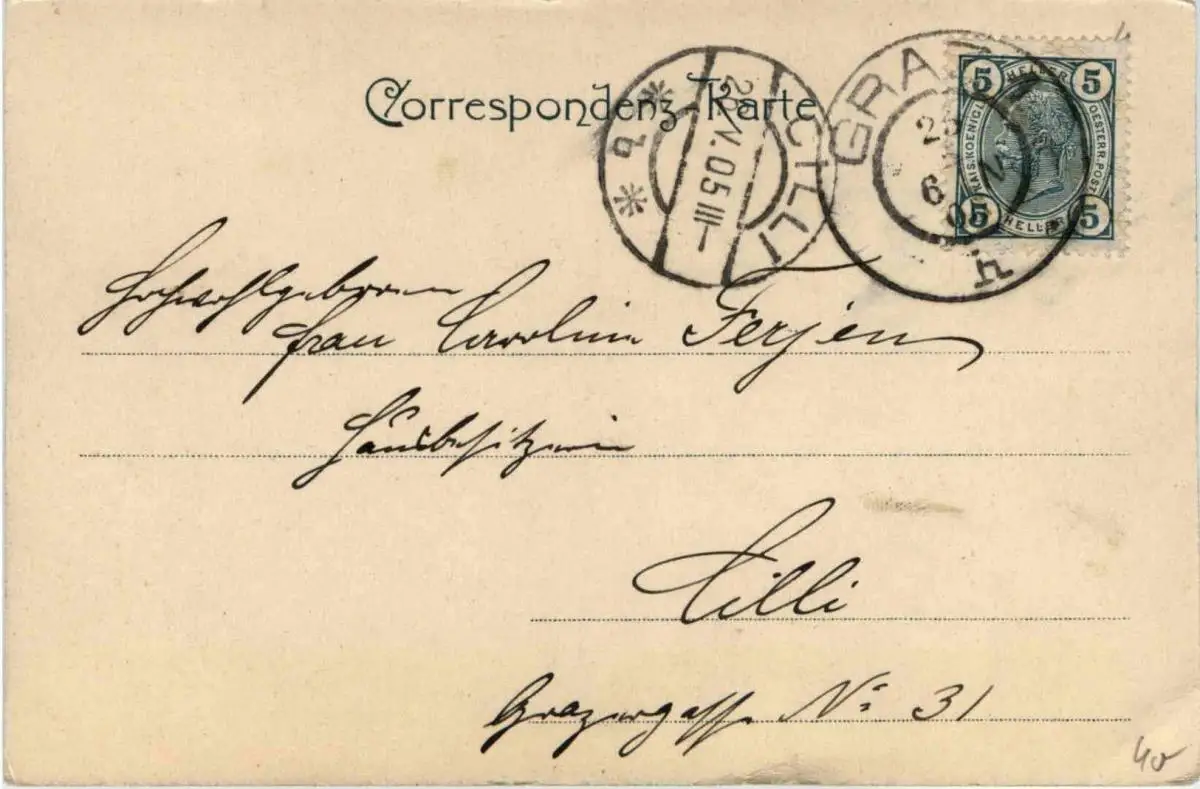 Correspondenz-Karte
CILLI
05 III
GRAZ
25
6
h
5 HELLER 5
KAIS. KOENIGL. OESTERR. POST
5 HELLER 5
Hochwohlgeboren
Frau Carolina Ferjen
Hausbesitzerin
Cilli
Grazergasse No 31
40